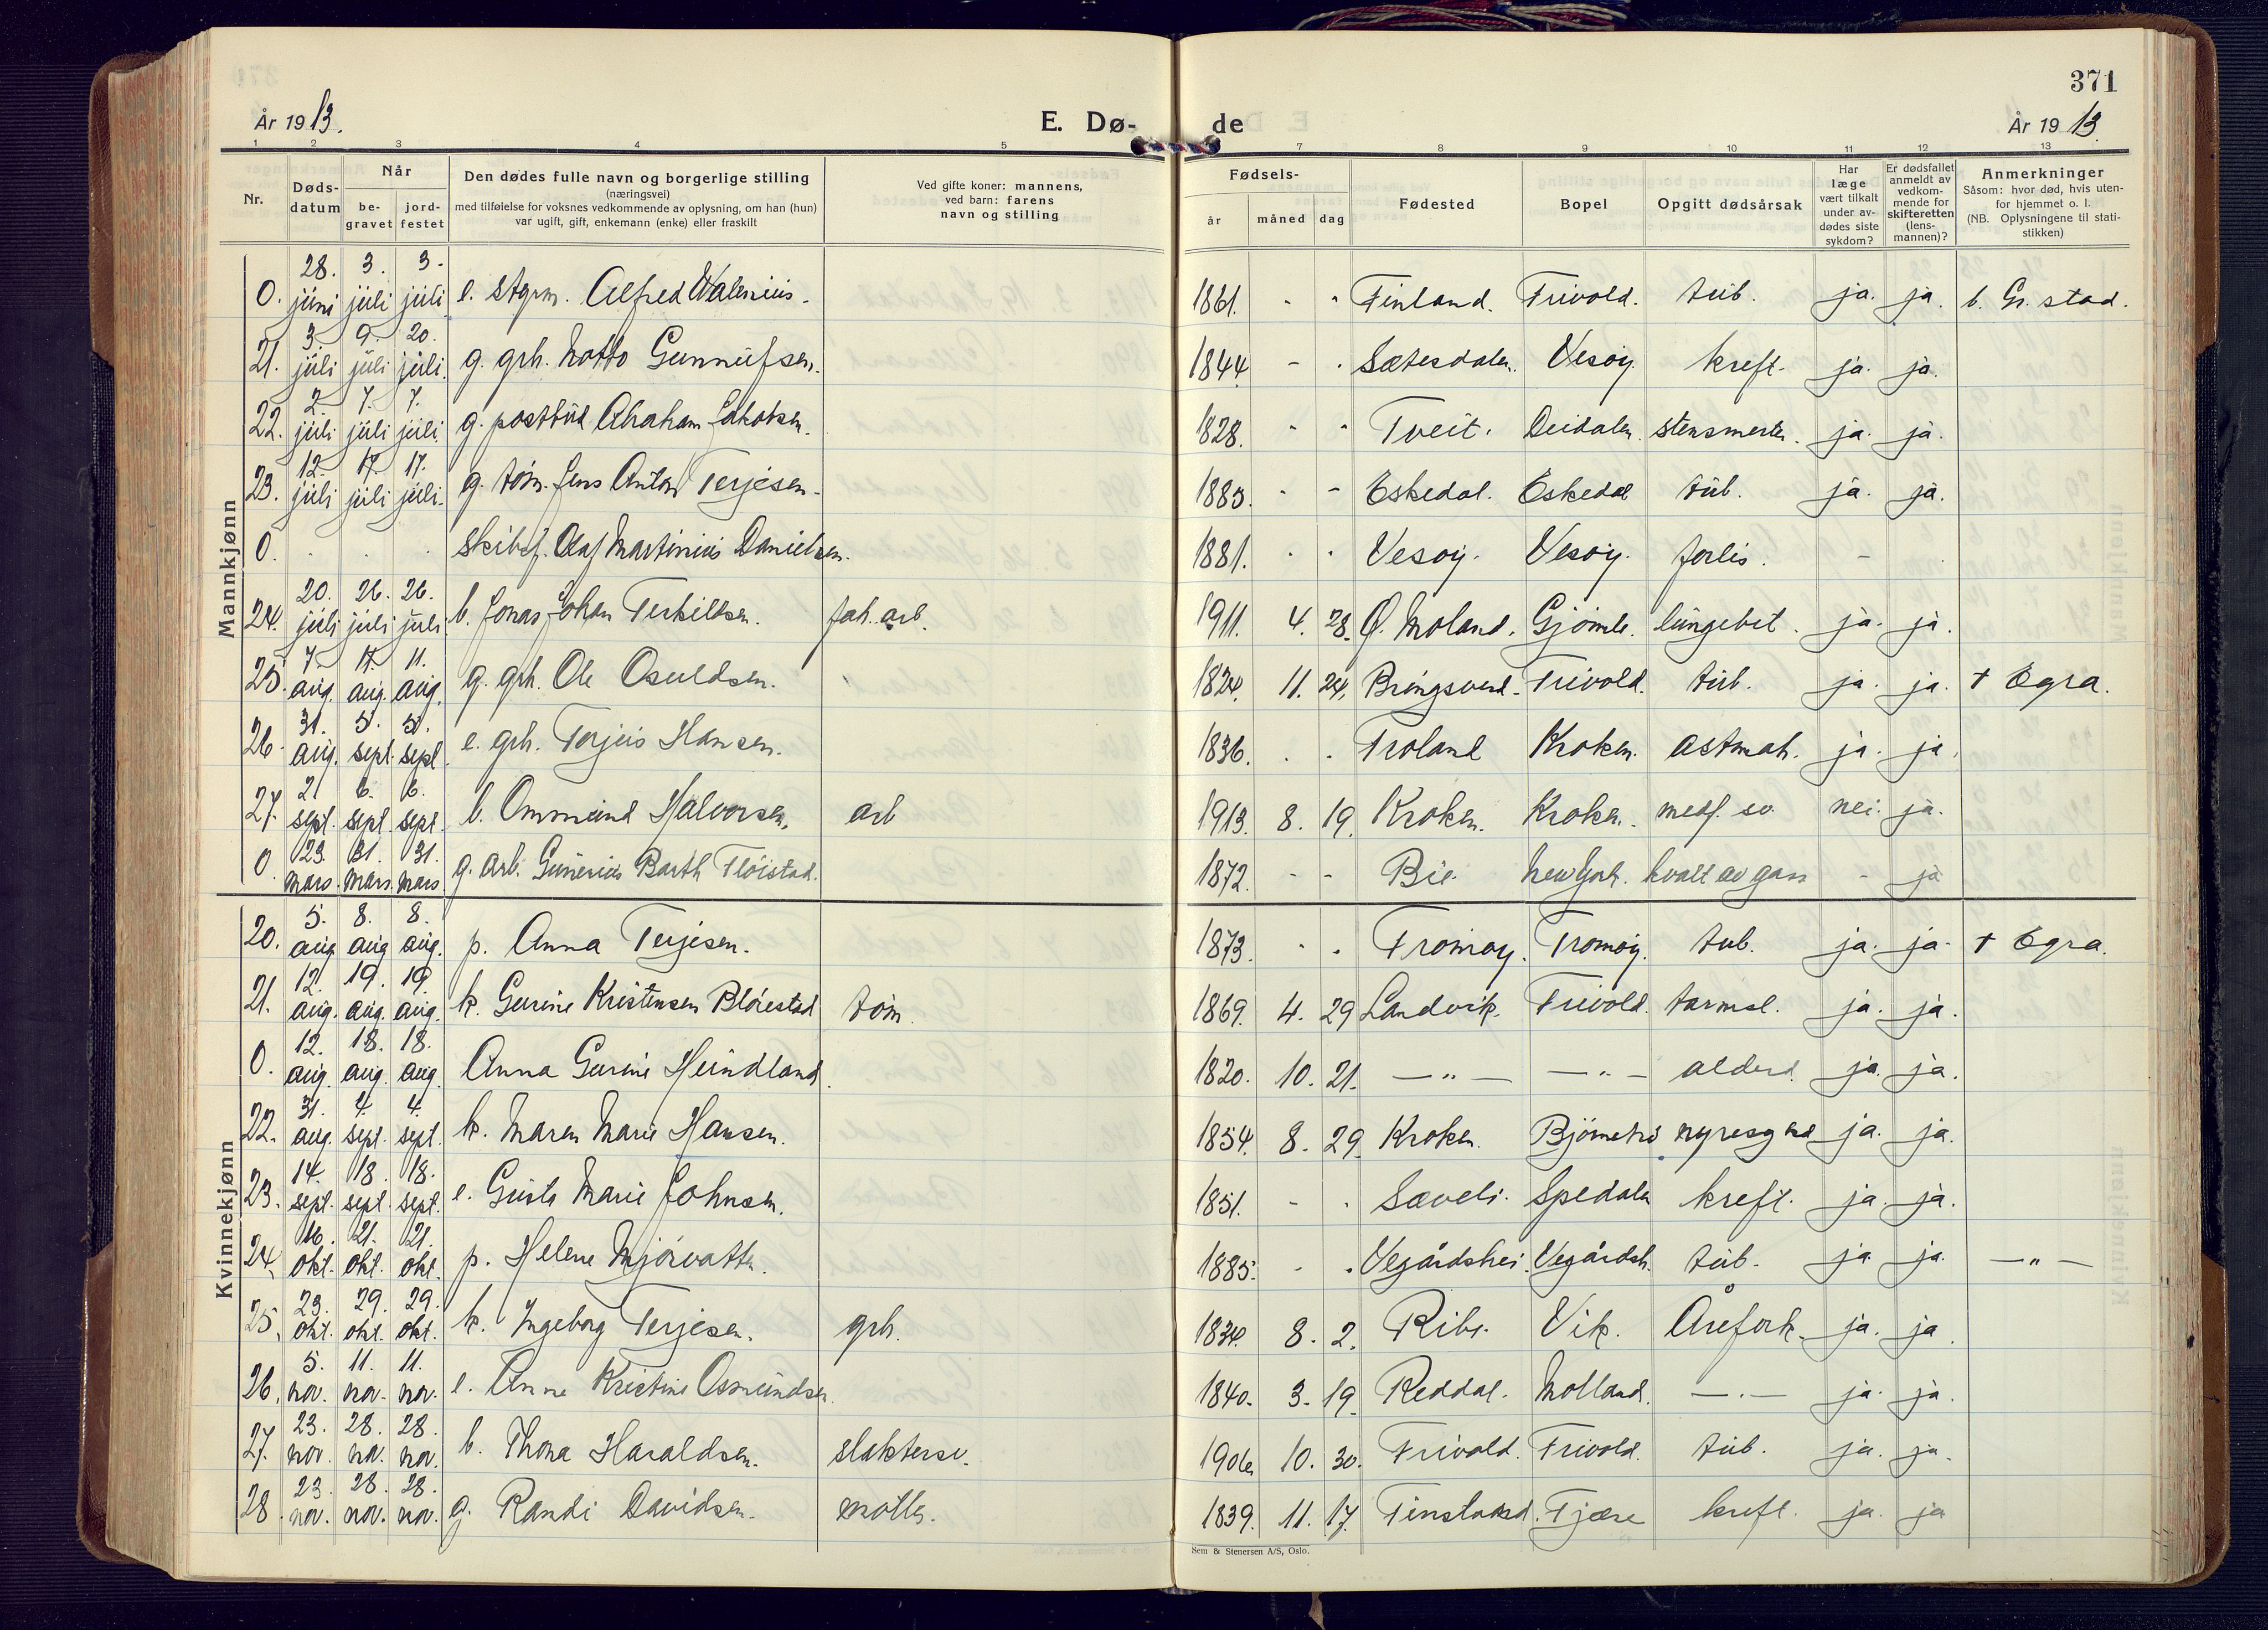 371
År 1913.
E. Dø-
de
År 1913.
1 2 3 4 5 7 8 9 10 11 12 13
Nr.
Døds-
datum
Når
be-
gravet
jord-
festet
Den dødes fulle navn og borgerlige stilling
(næringsvei)
med tilføielse for voksnes vedkommende av oplysning, om han (hun)
var ugift, gift, enkemann (enke) eller fraskilt
Ved gifte koner: mannens,
ved barn: farens
navn og stilling
Fødsels-
år måned dag
Fødested
Bopel
Opgitt dødsårsak
Har
læge
vært tilkalt
under av-
dødes siste
sykdom?
Er dødsfallet
anmeldt av
vedkom-
mende for
skifteretten
(lens-
mannen)?
Anmerkninger
Såsom: hvor død, hvis uten-
for hjemmet o. l.
(NB. Oplysningene til stati-
stikken)
Mannkjønn
28. 3. 3.
0. juni juli juli e. stgrm. Alfred Walenius. 1861. - - Finland. Frivold. tub. ja. ja. b. Gr. stad.
3. 9. 20.
21. juli juli juli. g. grh. Notto Gunnufsen. 1844 - - Sætesdalen. Vesøy. kreft. ja. ja.
2. 7. 7.
22. juli juli juli. g. postbud Abraham Jakobsen. 1828. - - Tveit. Deidalen. stensmerter. ja. ja.
12. 17. 17.
23. juli juli juli. g. tøm. Jens Anton Terjesen. 1883. - - Eskedal. Eskedal tub. ja. ja.
0. . . . skibsf. Olaf Martinius Danielsen. 1881. . . Vesøy. Vesøy. forlis. -
20. 26. 26.
24. juli juli juli b. Jonas Johan Terkildsen. fab. arb. 1911. 4. 28. Ø. Moland. Gjømle. lungebet. ja. ja.
7. 11. 11.
25. aug. aug. aug. g. grh. Ole Osuldsen. 1824. 11. 24. Bringsverd. Frivold. tub. ja. ja. + Egra.
31. 5. 5.
26. aug. sept. sept. e. grh. Terjus Hansen. 1836. . . Froland Kroken. astmah. ja. ja.
2. 6. 6.
27. sept. sept. sept. b. Ommund Halvorsen. arb 1913. 8. 19. Kroken. Kroken. medf. sv. nei. ja.
23. 31. 31.
0. mars. mars. mars g. arb. Gunerius Barth Fløistad. 1872. - - Bie New York. kvalt av gass - ja
Kvinnekjønn
5. 8. 8.
20. aug aug aug. p. Anna Terjesen. 1873. . . Tromøy. Tromøy. tub. ja. ja. + Egra.
12. 19. 19.
21. aug. aug. aug. k. Gurine Kristensen Bløiestad tøm. 1869. 4. 29 Landvik. Frivold. tarmsl. ja. ja.
12. 18. 18.
0. aug. aug. aug Anna Gurine Heindland. 1820. 10. 21. —"— —"— alderd. ja. ja.
31. 4. 4.
22. aug. sept. sept. k. Maren Marie Hansen. 1854. 8. 29. Kroken. nyresygd ja. ja.
14. 18. 18.
23. sept. sept. sept. e. Guste Marie Johnsen. 1851. - . Sæveli. Spedalen kreft. ja. ja.
16. 21. 21.
24. okt. okt. okt. p. Helene Mjørvatten. 1885. - . Vegårdshei. Vegårdsh. tub. ja. ja. —"—
23. 29. 29.
25. okt. okt. okt. k. Ingeborg Terjesen. grh. 1834. 8. 2. Ribe. Vik. Årefork. ja. ja.
5. 11. 11.
26. nov. nov. nov. e. Anne Kristine Osmundsen. 1840. 3. 19. Reddal. Molland. —"— ja. ja.
23. 28. 28.
27. nov. nov. nov. b. Thora Haraldsen. slaktersv. 1906 10. 30. Frivold. Frivold. tub. ja. ja.
23. 28. 28.
28. nov. nov. nov. g. Randi Davidsen. møller. 1839. 11. 17. Finsland. Fjære kreft. ja. ja
Sem & Stenersen A/S, Oslo.